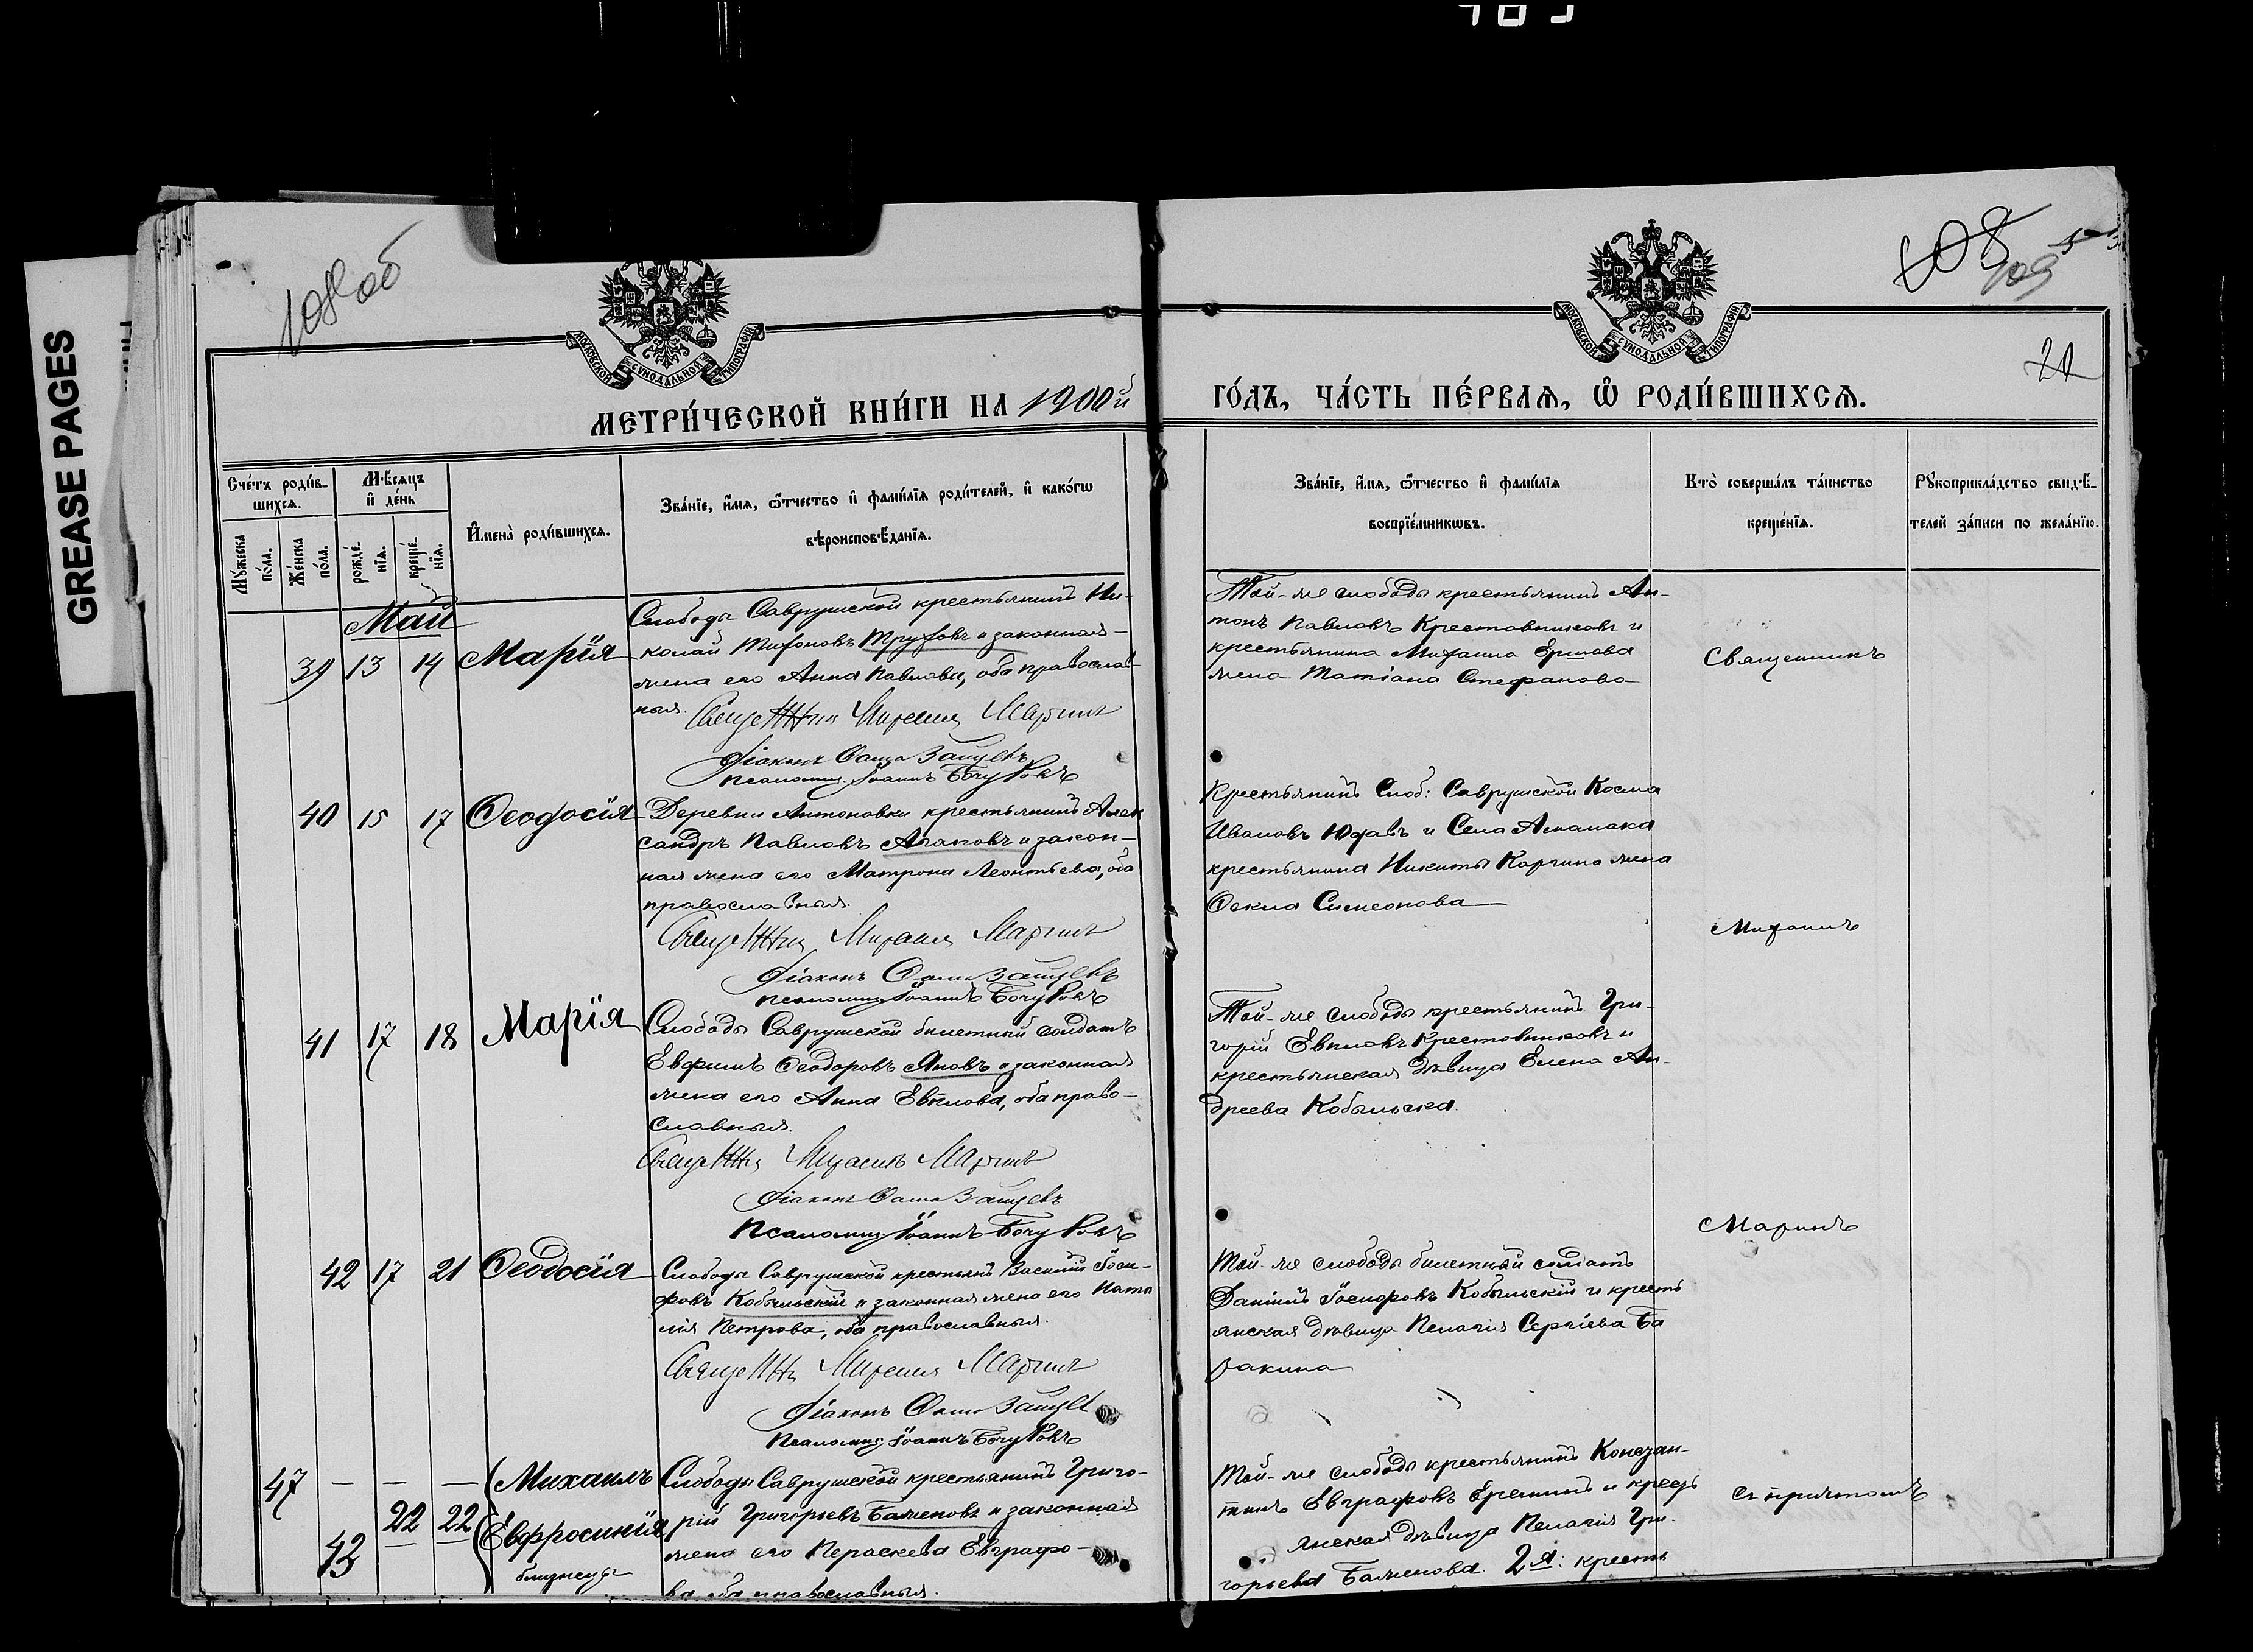 GREASE PAGES
108 об
108
109
МОСКОВСКОЙ СУНОДАЛЬНОЙ ТИПОГРАФІИ
МОСКОВСКОЙ СУНОДАЛЬНОЙ ТИПОГРАФІИ
МЕТРИ́ЧЕСКОЙ КНИ́ГИ НА 1900й
ГО́ДЪ, ЧА́СТЬ ПЕ́РВАЯ, Ѡ҆ РОДИ́ВШИХСЯ.
Сче́тъ роди́в-
шихся.
Му́жеска
по́ла.
Же́нска
по́ла.
Мѣ́сяцъ
и҆ де́нь
рожде́-
нїя.
креще́-
нїя.
И҆мена̀ роди́вшихся.
Зва́нїе, и҆́мя, ѻ҆́тчество и҆ фами́лїя роди́телей, и҆ како́гѡ
вѣроисповѣ́данїя.
Зва́нїе, и҆́мя, ѻ҆́тчество и҆ фами́лїя
воспрїе́мникѡвъ.
Кто̀ соверша́лъ та́инство
креще́нїя.
Рꙋкоприкла́дство свидѣ́-
телей за́писи по жела́нїю.
Май
39 13 14 Марія
Слободы Саврушской крестьянинъ Ни-
колай Тифоновъ Труфовъ и законная
жена его Анна Павлова, оба православ-
ныя.
Священник Михаил Маргинъ
Діаконъ Зайцевъ
Псаломщ. Іоаннъ Бочу
Той-же слободы крестьянинъ Ан-
тонъ Павловъ Крестовниковъ и
крестьянина Михаила Ершова
жена Татіана Стефанова
Священникъ
40 15 17 Ѳеодосія
Деревни Антоновки крестьянинъ Алек
сандръ Павловъ Агаповъ и закон-
ная жена его Матрона Леонтьева, оба
православныя.
Священник Михаил Маргинъ
Діаконъ Зайцевъ
Псаломщ. Іоаннъ Бочу
Крестьянинъ Слоб: Саврушской Косма
Ивановъ Юдавъ и Села Аманака
крестьянина Никиты Каргина жена
Ѳекла Симеонова
Михаилъ
41 17 18 Марія
Слободы Саврушской билетный солдатъ
Евфимъ Ѳеодоровъ Яновъ и законная
жена его Анна Евплова, оба право-
славныя.
Священник Михаилъ Маргинъ
Діаконъ Зайцевъ
Псаломщ. Іоаннъ Бочу
Той-же слободы крестьянинъ Гри-
горій Евпловъ Крестовниковъ и
крестьянская дѣвица Елена Ан-
дреева Кобыльска.
Маринъ
42 17 21 Ѳеодосія
Слободы Саврушской крестьянъ Василій Іоси-
фовъ Кобыльскій и законная жена его Ната
лія Петрова, оба православныя.
Священник Михаил Маргинъ
Діаконъ Зайцев
Псаломщ. Іоаннъ Бочу
Той-же слободы билетный солдатъ
Даніилъ Іосифовъ Кобыльскій и кресть
янская дѣвица Пелагія Сергіева Ба
ракина
47 — — — Михаилъ
43 22 22 Евфросинія
близнецы
Слободы Саврушской крестьянинъ Григо-
рій Григорьевъ Баженовъ и законная
жена его Параскева Евграфо-
ва оба православныя.
Той-же слободы крестьянинъ Констан-
тинъ Евграфовъ Еремин и кресть
янская дѣвица Пелагія Гри-
горьева Баженова. 2я: кресть
Съ причтомъ